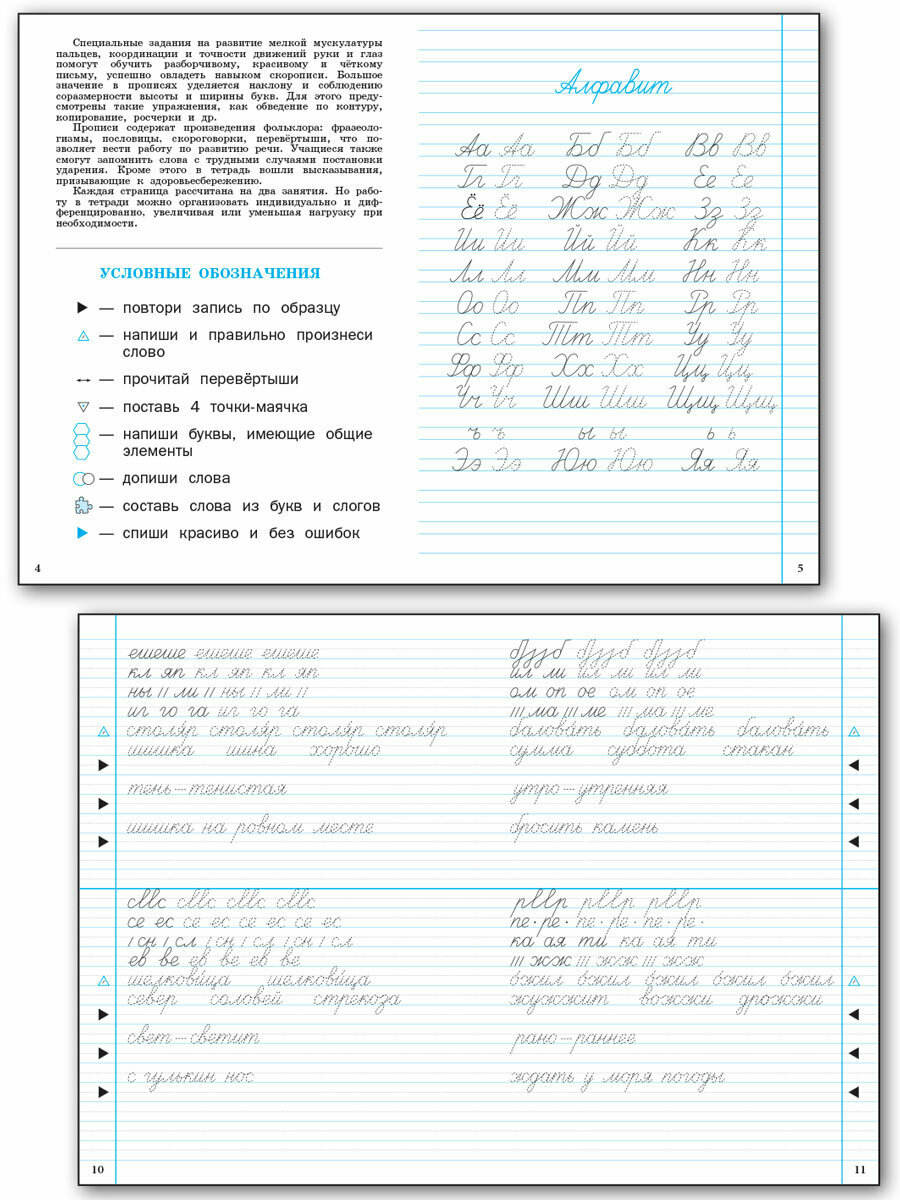 Специальные задания на развитие мелкой мускулатуры
пальцев, координации и точности движений руки и глаз
помогут обучить разборчивому, красивому и чёткому
письму, успешно овладеть навыком скорописи. Большое
значение в прописях уделяется наклону и соблюдению
соразмерности высоты и ширины букв. Для этого преду-
смотрены такие упражнения, как обведение по контуру,
копирование, росчерки и др.
Прописи содержат произведения фольклора: фразеоло-
гизмы, пословицы, скороговорки, перевёртыши, что по-
зволяет вести работу по развитию речи. Учащиеся также
смогут запомнить слова с трудными случаями постановки
ударения. Кроме этого в тетрадь вошли высказывания,
призывающие к здоровьесбережению.
Каждая страница рассчитана на два занятия. Но рабо-
ту в тетради можно организовать индивидуально и диф-
ференцированно, увеличивая или уменьшая нагрузку при
необходимости.
УСЛОВНЫЕ ОБОЗНАЧЕНИЯ
— повтори запись по образцу
— напиши и правильно произнеси
слово
— прочитай перевёртыши
— поставь 4 точки-маячка
— напиши буквы, имеющие общие
элементы
— допиши слова
— составь слова из букв и слогов
— спиши красиво и без ошибок
4
Алфавит
Аа Аа Бб Бб Вв Вв
Гг Гг Дд Дд Ее Ее
Ёё Ёё Жж Жж Зз Зз
Ии Ии Йй Йй Кк Кк
Лл Лл Мм Мм Нн Нн
Оо Оо Пп Пп Рр Рр
Сс Сс Тт Тт Уу Уу
Фф Фф Хх Хх Цц Цц
Чч Чч Шш Шш Щщ Щщ
ъ ъ ы ы ь ь
Ээ Ээ Юю Юю Яя Яя
5
ешеше ешеше ешеше
кл яп кл яп кл яп
ны // ли // ны // ли //
иг го га иг го га
столя́р столя́р столя́р столя́р
шишка шина хорошо
тень – тенистая
шишка на ровном месте
се ес се ес се ес
/ сн / сл / сн / сл / сн / сл
ев ве ев ве ев ве
шелкови́ца шелкови́ца
север соловей стрекоза
свет – светит
с гулькин нос
10
ил ли ил ли ил ли
ом оп ое ом оп ое
/// ма /// ме /// ма /// ме
балова́ть балова́ть балова́ть
сумма суббота стакан
утро – утренняя
бросить камень
пе · ре · пе · ре · пе · ре ·
ка ая ти ка ая ти
/// жж /// жж /// жж
о́жил о́жил о́жил о́жил о́жил
жужжит вожжи дрожжи
рано – раннее
ждать у моря погоды
11